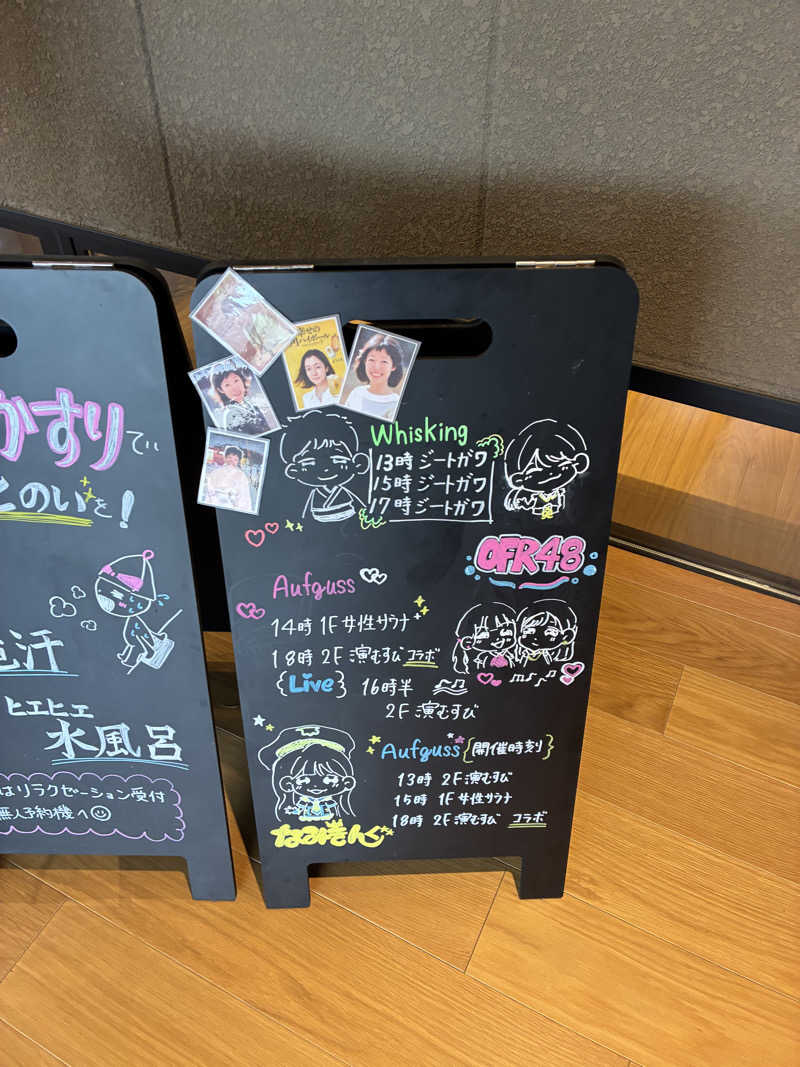 かすりでぃ
とのいを!
汗
ヒエヒエ
水風呂
はリラクゼーション受付
無人予約機へ
Whisking
13時 ジートガワ
15時 ジートガワ
17時 ジートガワ
OFR48
Aufguss
14時 1F 女性サウナ
18時 2F 演むすび コラボ
{Live} 16時半
2F 演むすび
Aufguss {開催時刻}
13時 2F 演むすび
15時 1F 女性サウナ
18時 2F 演むすび コラボ
なみきんぐ